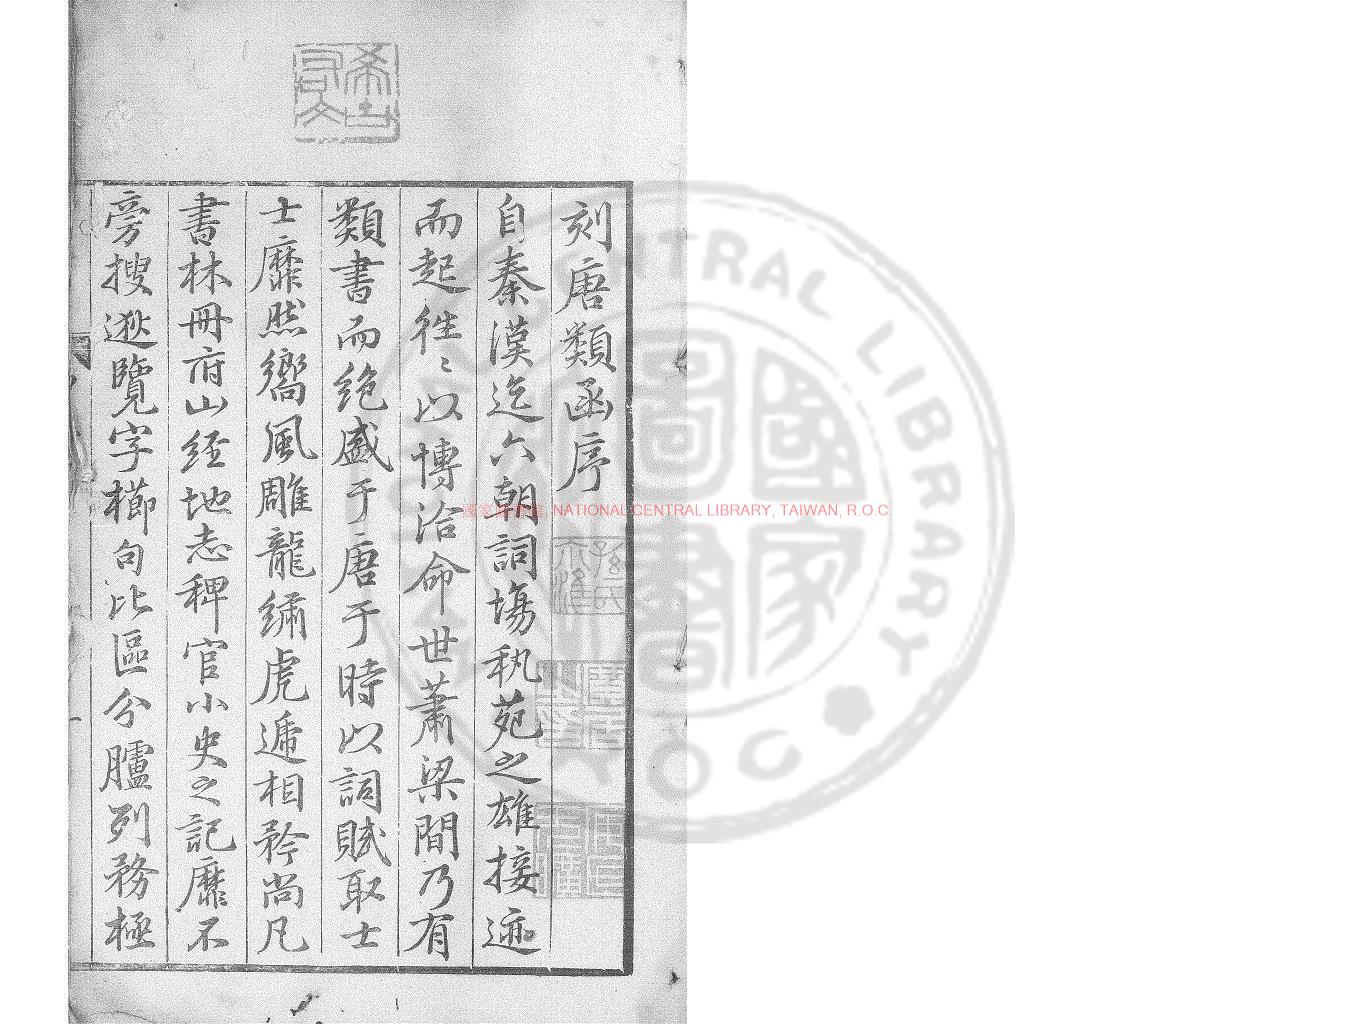 刻唐類函序
自秦漢迄六朝詞塲秇苑之雄接迹
而起徃〻以博洽命世蕭梁間乃有
類書而絶盛于唐于時以詞賦取士
士靡然嚮風雕龍繡虎遞相矜尚凡
書林冊府山経地志稗官小史之記靡不
旁搜逖覽字櫛句比區分臚列務極
希古
右文
國家圖書館 NATIONAL CENTRAL LIBRARY, TAIWAN, R.O.C.
CENTRAL LIBRARY
ROC
國家圖書